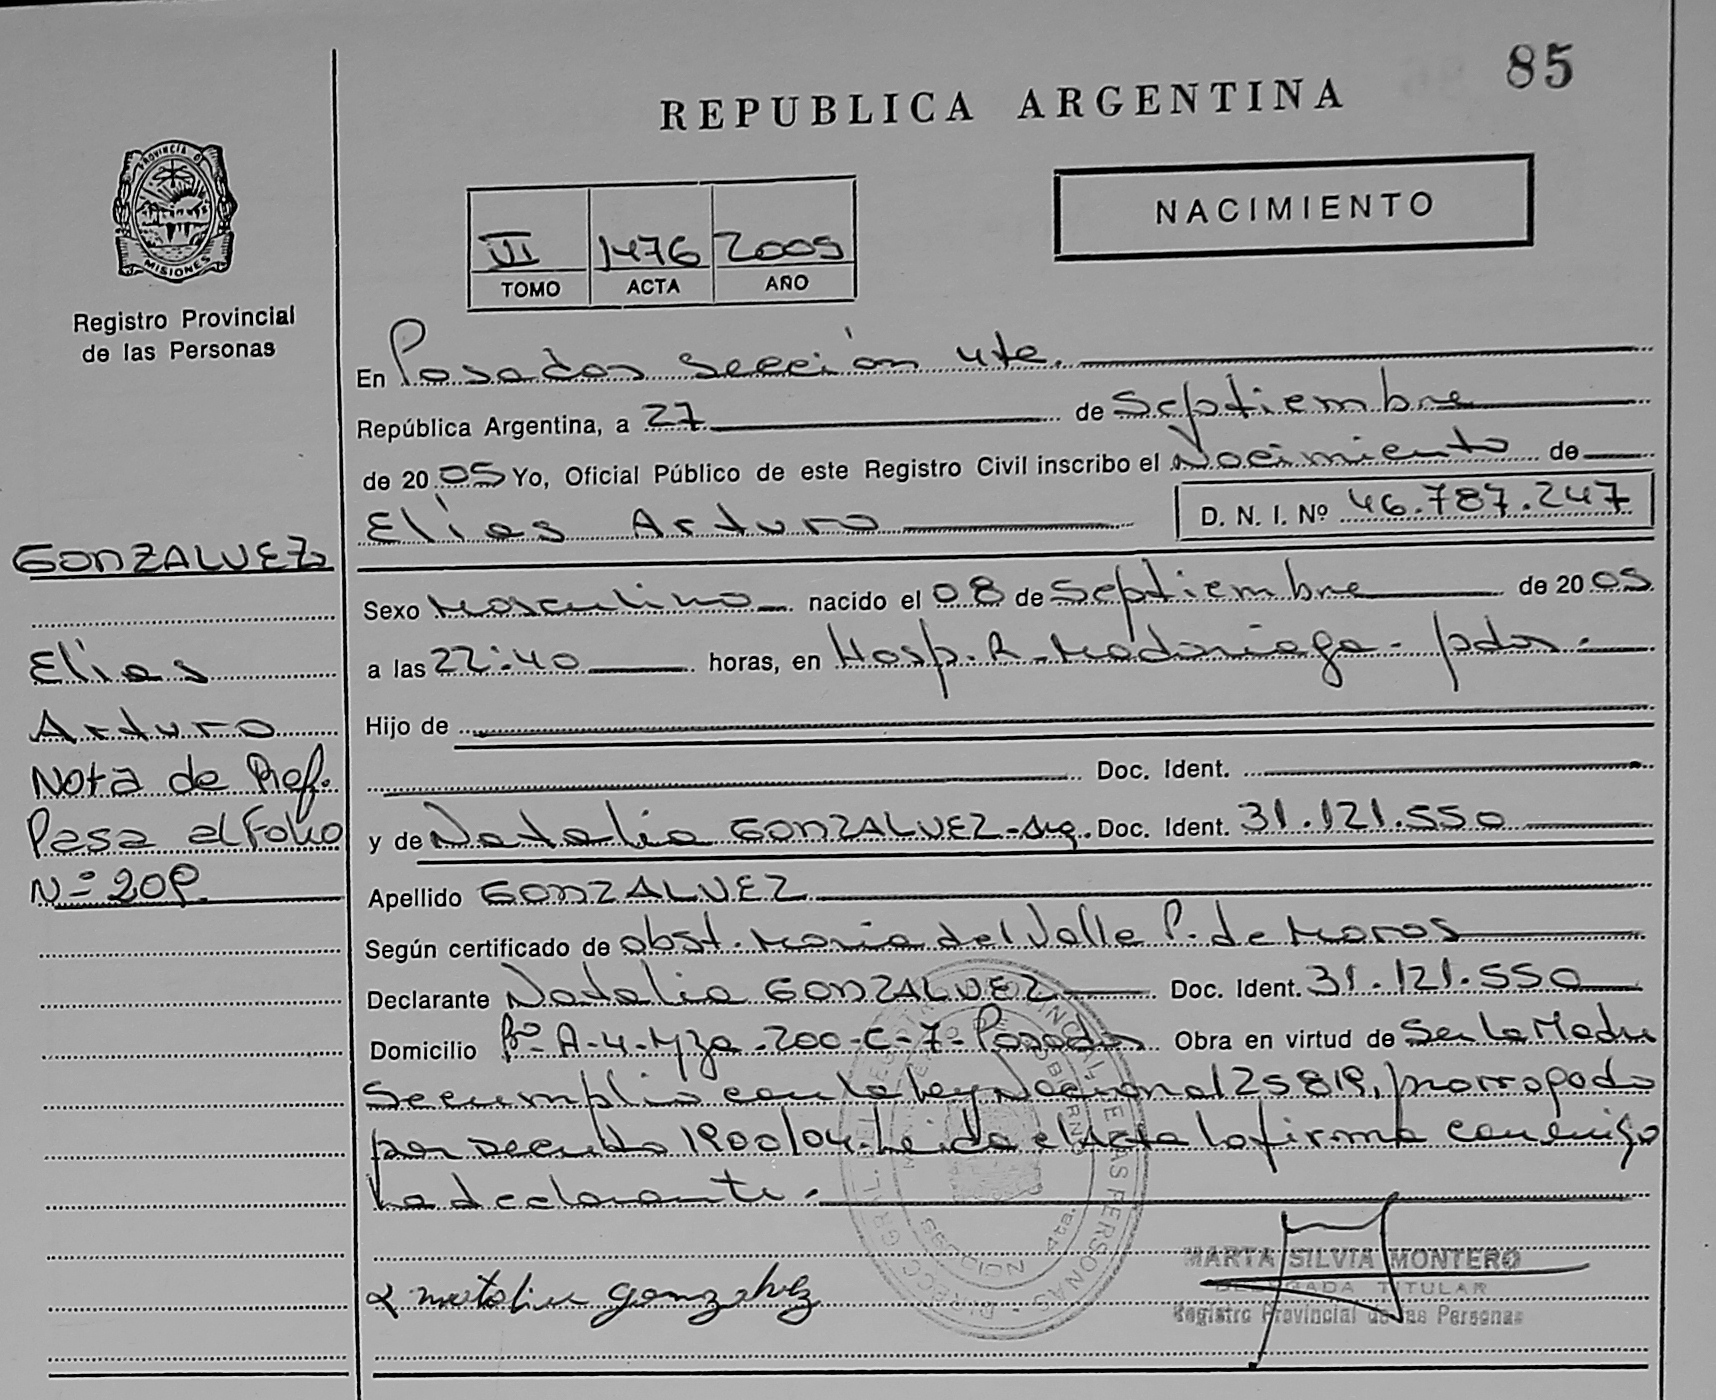 85
REPUBLICA ARGENTINA
NACIMIENTO
PROVINCIA DE
MISIONES
Registro Provincial
de las Personas
III 1476 2005
TOMO ACTA AÑO
En Posadas Sección 4ta.
República Argentina, a 27 de Septiembre
de 2005 Yo, Oficial Público de este Registro Civil inscribo el Nacimiento de
Elias Arturo D. N. I. Nº 46.787.247
GONZALVEZ
Elias
Arturo
Nota de Ref.
Pasa al Folio
Nº 209
Sexo Masculino nacido el 08 de Septiembre de 2005
a las 22:40 horas, en Hosp. R. Madariaga - pdas.-
Hijo de
Doc. Ident.
y de Natalia GONZALVEZ-Arg. Doc. Ident. 31.121.550
Apellido GONZALVEZ
Según certificado de obst. Maria del Valle P. de Maros
Declarante Natalia GONZALVEZ Doc. Ident. 31.121.550
Domicilio Bº A-4-Mza-200-C-7-Posadas Obra en virtud de Ser La Madre
Se cumplio con la ley Nacional 25819, prorrogado
por Decreto 1900/04. Leida el Acta la firma conmigo
La declarante.-
natalia gonzalvez
MARTA SILVIA MONTERO
DELEGADA TITULAR
Registro Provincial de las Personas